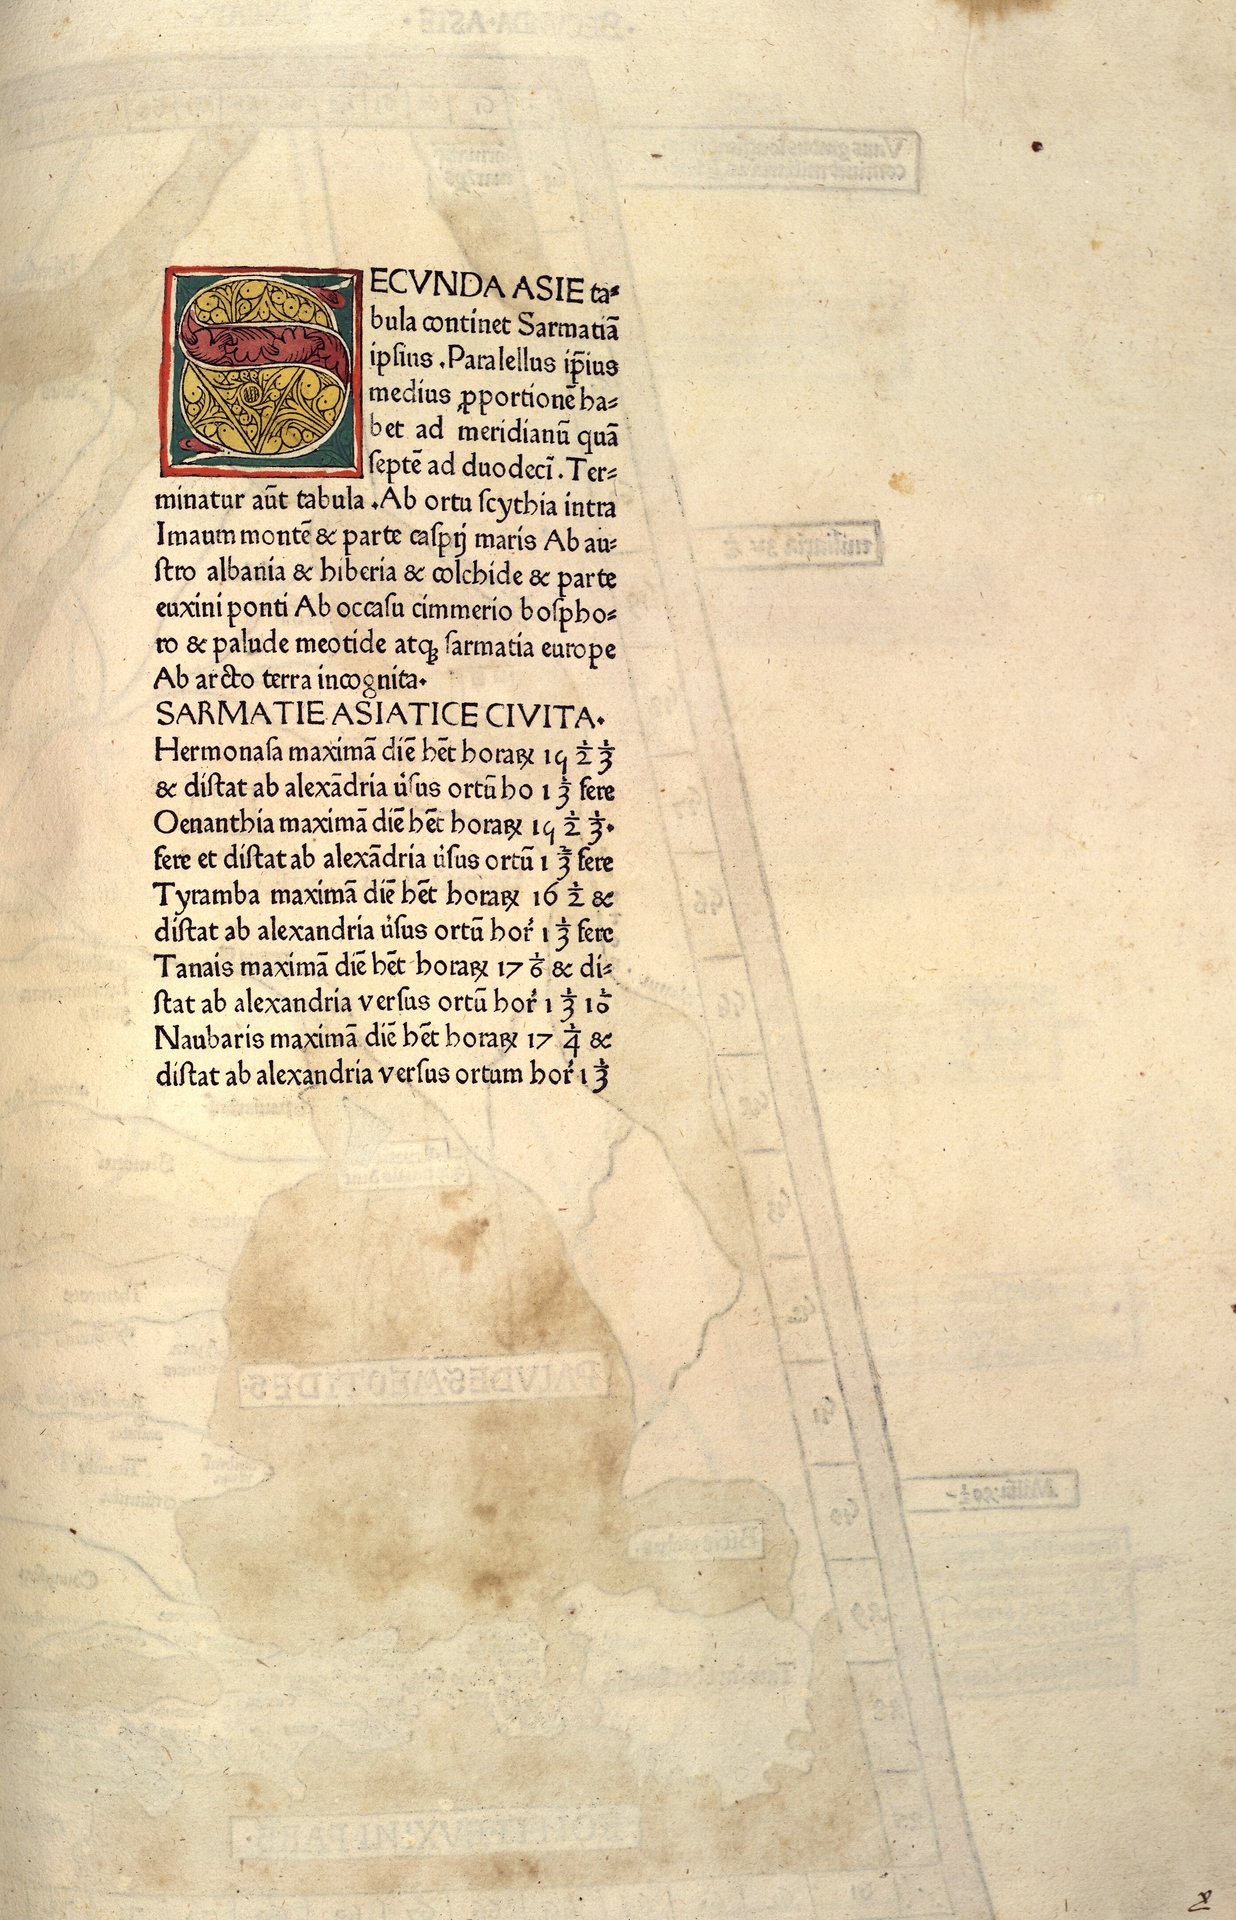 SECVNDA ASIE ta-
bula continet Sarmatiā
ipsius . Paralellus ip̄ius
medius ꝓportionē ha-
bet ad meridianū quā
septē ad duodecī . Ter-
minatur aūt tabula . Ab ortu scythia intra
Imaum montē & parte caspij maris Ab au-
stro albania & hiberia & colchide & parte
euxini ponti Ab occasu cimmerio bospho-
ro & palude meotide atqꝫ sarmatia europe
Ab arcto terra incognita.
SARMATIE ASIATICE CIVITA.
Hermonasa maximā diē hēt horaꝝ 15 ½ ⅓
& distat ab alexādria ẘsus ortū ho 1 ⅔ fere
Oenanthia maximā diē hēt horaꝝ 15 ½ ⅓.
fere et distat ab alexādria ẘsus ortū 1 ⅔ fere
Tyramba maximā diē hēt horaꝝ 16 ½ &
distat ab alexandria ẘsus ortū hoɼ 1 ⅓ fere
Tanais maximā diē hēt horaꝝ 17 ⅙ & di-
stat ab alexandria versus ortū hoɼ 1 ⅓ ⅒
Naubaris maximā diē hēt horaꝝ 17 ¼ &
distat ab alexandria versus ortum hoɼ 1 ⅔